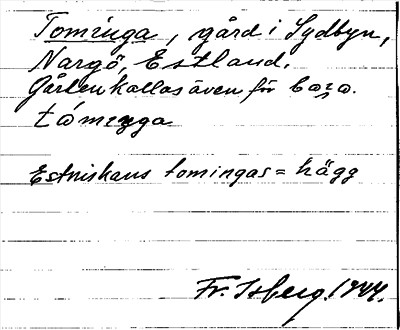 Tominga, gård i Sydbyn,
Nargö, Estland.
Gården kallas även för
támeŋga
Estniskans tomingas = hägg
Fr. Isberg. 1944.